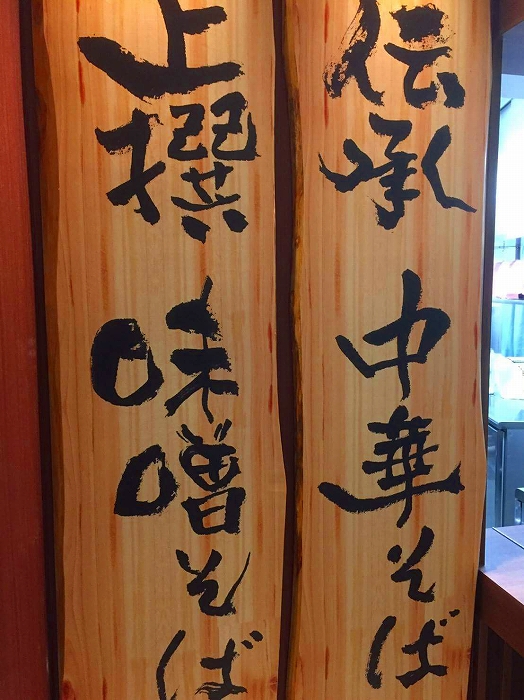 伝承 中華そば
上撰 味噌そば